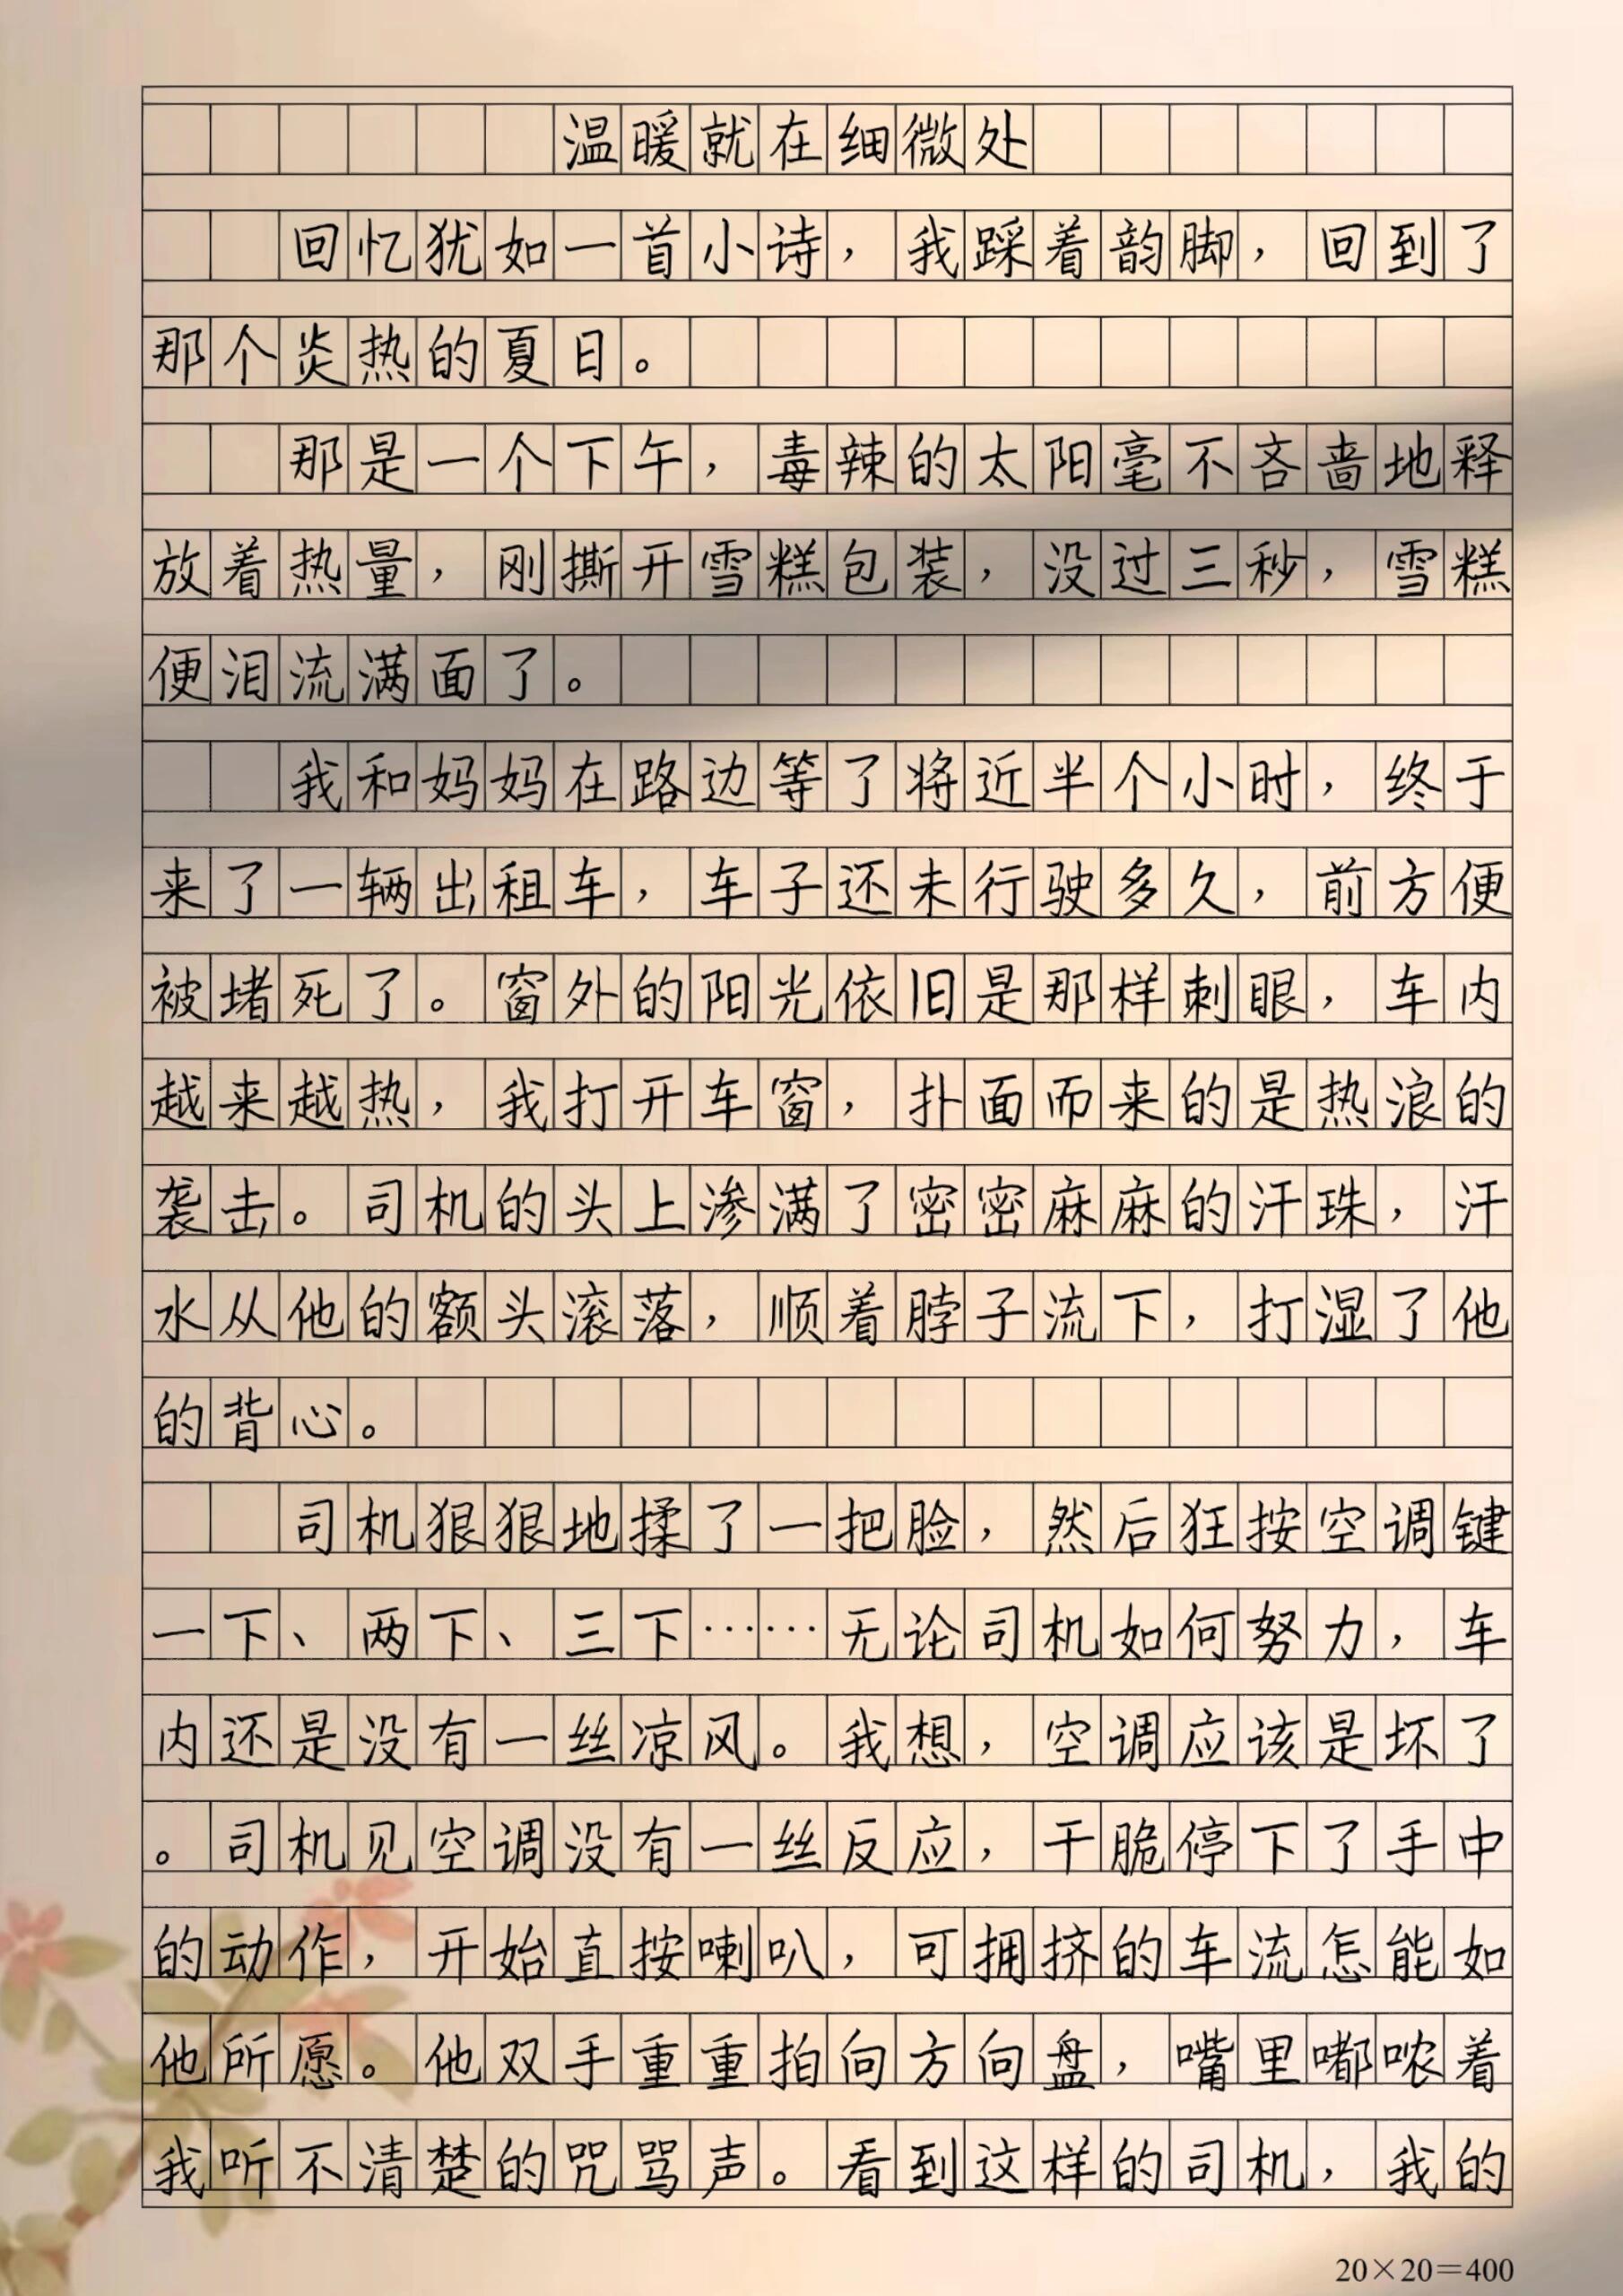 温暖就在细微处
回忆犹如一首小诗，我踩着韵脚，回到了
那个炎热的夏日。
那是一个下午，毒辣的太阳毫不吝啬地释
放着热量，刚撕开雪糕包装，没过三秒，雪糕
便泪流满面了。
我和妈妈在路边等了将近半个小时，终于
来了一辆出租车，车子还未行驶多久，前方便
被堵死了。窗外的阳光依旧是那样刺眼，车内
越来越热，我打开车窗，扑面而来的是热浪的
袭击。司机的头上渗满了密密麻麻的汗珠，汗
水从他的额头滚落，顺着脖子流下，打湿了他
的背心。
司机狠狠地揉了一把脸，然后狂按空调键
一下、两下、三下……无论司机如何努力，车
内还是没有一丝凉风。我想，空调应该是坏了
。司机见空调没有一丝反应，干脆停下了手中
的动作，开始直按喇叭，可拥挤的车流怎能如
他所愿。他双手重重拍向方向盘，嘴里嘟哝着
我听不清楚的咒骂声。看到这样的司机，我的
20×20=400